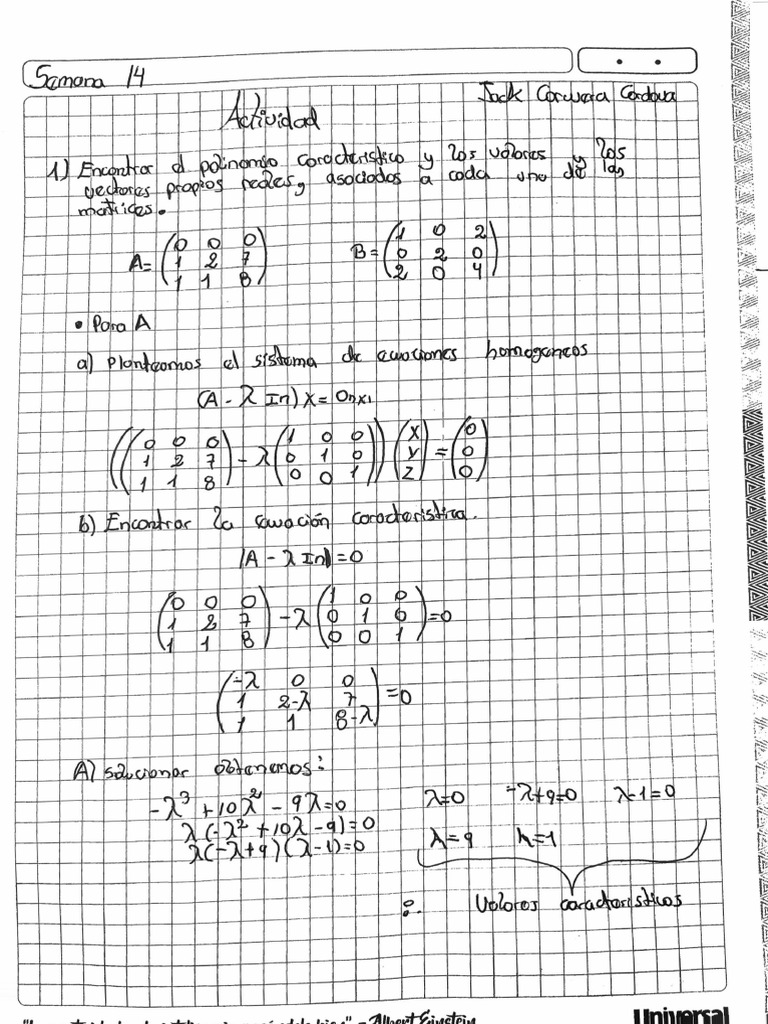 Semana 14
Jack Corcuera Cordova
Actividad
1) Encontrar el polinomio característico y los valores y los
vectores propios reales, asociados a cada uno de las
matrices.
A= (0 0 0; 1 2 7; 1 1 8) B= (1 0 2; 0 2 0; 2 0 4)
• Para A
a) Planteamos el sistema de ecuaciones homogeneos
(A - λ In) X = 0nx1
((0 0 0; 1 2 7; 1 1 8) - λ (1 0 0; 0 1 0; 0 0 1)) (X; Y; Z) = (0; 0; 0)
b) Encontrar la ecuación caracteristica.
|A - λ In| = 0
(0 0 0; 1 2 7; 1 1 8) - λ (1 0 0; 0 1 0; 0 0 1) = 0
(-λ 0 0; 1 2-λ 7; 1 1 8-λ) = 0
A) solucionar obtenemos:
-λ³ + 10λ² - 9λ = 0
λ(-λ² + 10λ - 9) = 0
λ(-λ + 9)(λ - 1) = 0
λ=0 -λ+9=0 λ-1=0
λ=9 λ=1
∴ Valores caracteristicos
Albert Einstein
Universal